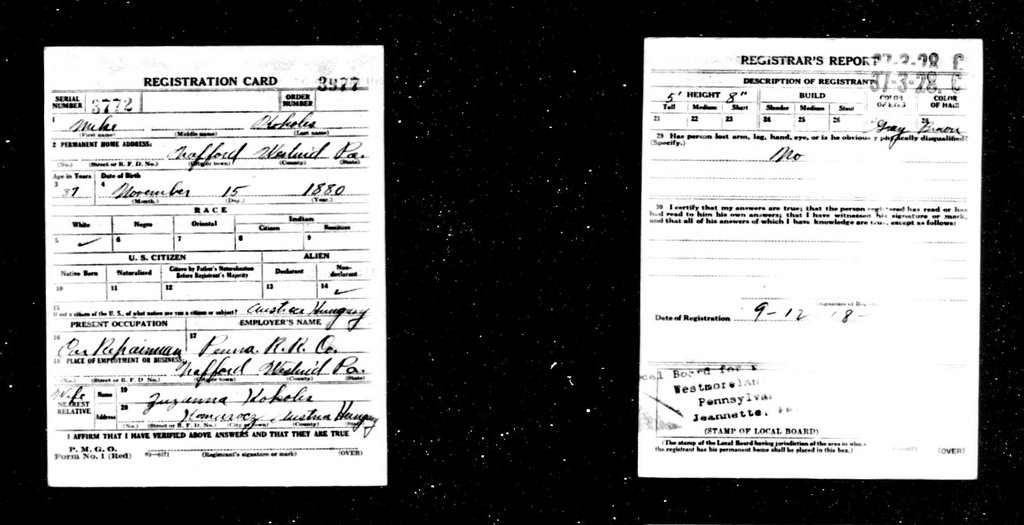 REGISTRATION CARD 3977
SERIAL NUMBER 3772 ORDER NUMBER
1 Mike Kokolis
(First name) (Middle name) (Last name)
2 PERMANENT HOME ADDRESS:
Trafford Westm'd Pa.
(No.) (Street or R. F. D. No.) (City or town) (County) (State)
Age in Years Date of Birth
3 37 4 November 15 1880
(Month.) (Day.) (Year.)
RACE
White Negro Oriental Indian
Citizen Noncitizen
5 ✓ 6 7 8 9
U. S. CITIZEN ALIEN
Native Born Naturalized Citizen by Father's Naturalization Before Registrant's Majority Declarant Non-declarant
10 11 12 13 14 ✓
15
If not a citizen of the U. S., of what nation are you a citizen or subject? Austria Hungary
PRESENT OCCUPATION EMPLOYER'S NAME
16 Car Repairman 17 Penna R. R. Co.
18 PLACE OF EMPLOYMENT OR BUSINESS:
Trafford Westm'd Pa.
(No.) (Street or R. F. D. No.) (City or town) (County) (State)
Wife
NEAREST RELATIVE Name 19 Zuzanna Kokolis
Address 20 Austria Hungary
(No.) (Street or R. F. D. No.) (City or town) (County) (State)
I AFFIRM THAT I HAVE VERIFIED ABOVE ANSWERS AND THAT THEY ARE TRUE
P. M. G. O.
Form No. 1 (Red) (Registrant's signature or mark) (OVER)
REGISTRAR'S REPORT 37-3-28. C
37-3-28. C
DESCRIPTION OF REGISTRANT
5' HEIGHT 8" BUILD COLOR OF EYES COLOR OF HAIR
Tall Medium Short Slender Medium Stout
21 22 23 24 25 26 Gray Brown
29 Has person lost arm, leg, hand, eye, or is he obviously physically disqualified?
(Specify.)
No
30 I certify that my answers are true; that the person registered has read or has
had read to him his own answers; that I have witnessed his signature or mark,
and that all of his answers of which I have knowledge are true, except as follows:
Date of Registration 9-12 18-
Local Board for
Westmoreland
Pennsylvania
Jeannette,
(STAMP OF LOCAL BOARD)
(The stamp of the Local Board having jurisdiction of the area in which
the registrant has his permanent home shall be placed in this box.)
(OVER)